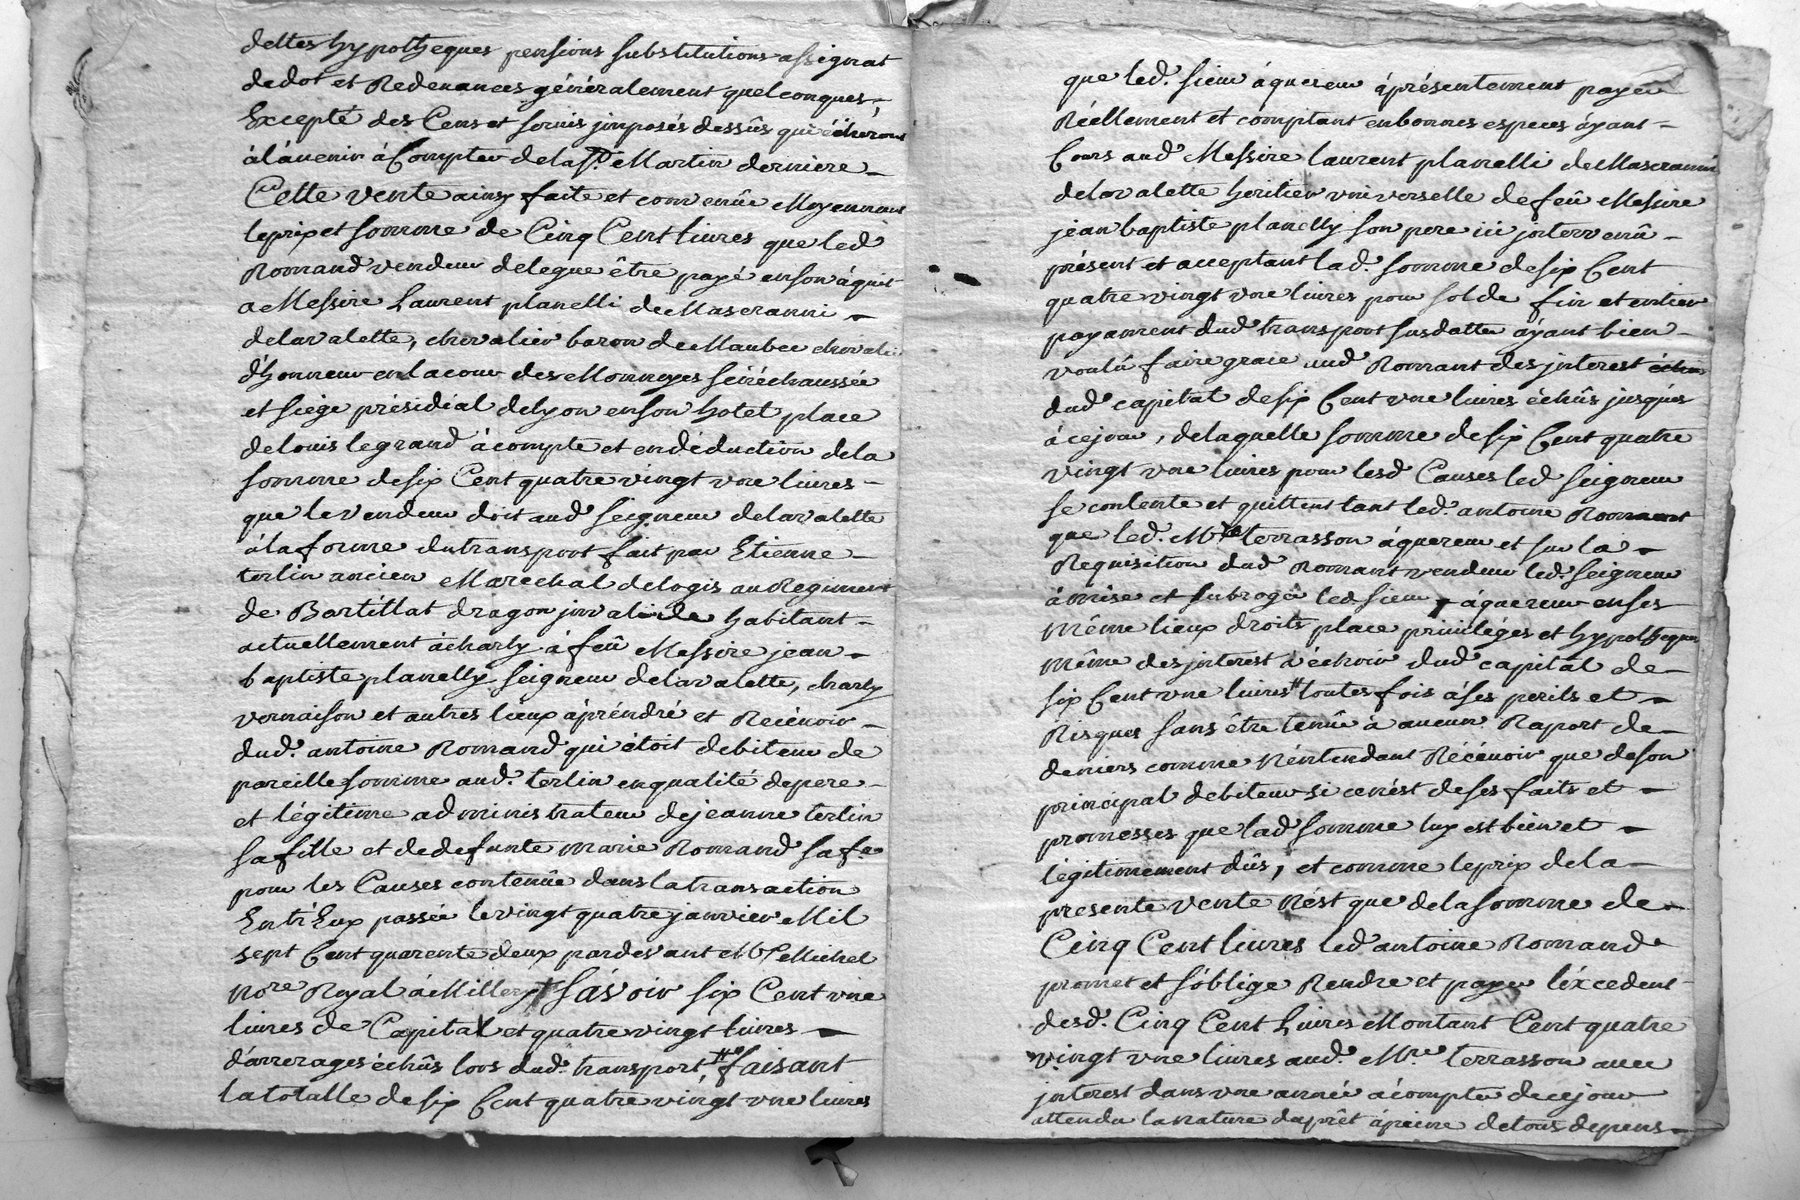 dettes hypotheques pensions substitutions assignat
de dot et Redevances généralement quelconques,
Excepté des Cens et servis jmposés dessûs qui écheront
à l'ávenir à Compter de la St. Martin derniere
Cette vente ainsy faite et convenüe Moyennant
le prix et somme de Cinq Cent livres que led.
Romand vendeur delegue être payé en son áquit
a Messire Laurent planelli de Mascranni
delavalette, chevalier baron de Maubec chevalier
d'honneur en la cour des Monnoyes sénéchaussée
et siége présidial de lyon en son hotel place
de louis le grand à compte et en déduction de la
somme de six Cent quatre vingt vne livres
que le vendeur doit aud. seigneur delavalette
á la forme du transport fait par Etienne
terlin ancien Marechal de logis au Regiment
de Bartillat dragon jnvalide habitant
actuellement à charly à feû Messire jean
baptiste planelly seigneur delavalette, charly
vernaison et autres lieux á préndré et Recévoir
dud. antoine Romand qui étoit debiteur de
pareille somme aud. terlin en qualité de pere
et légitime administrateur de jeanne terlin
sa fille et de defunte marie Romand sa fe.
pour les Causes contenüe dans la transaction
Entr'Eux passée le vingt quatre janvier Mil
sept Cent quarente deux pardevant Me. Michel
Nore Royal à Millery sávoir six Cent vne
livres de Capital et quatre vingt livres
d'arrerages échûs lors dud. transport, faisant
la totalle de six Cent quatre vingt vne livres
que led. sieur áquereur á présentement payé
Réellement et comptant en bonnes especes áyant
Cours aud. Messire laurent planelli de Mascranni
delavalette heritier vniverselle de feû Messire
jean baptiste planelly son pere ici jntervenû
présent et acceptant lad. somme de six Cent
quatre vingt vne livres pour solde fin et entier
payement dud. transport susdatté áyant bien
voulû faire grace aud. Romant des jnterest
dud. capital de six Cent vne livres échûs jusqués
à ce jour, de laquelle somme de six Cent quatre
vingt vne livres pour lesd. Causes led. seigneur
se contente et quittent tant led. antoine Romant
que led. Mre terrasson áquereur et sur la
Requisition dud. Romant vendeur led. seigneur
à mise et subrogé led. sieur áquereur en ses
même lieux droits place priviléges et hypotheques
même des jnterest à échoir dud. capital de
six Cent vne livres toutes fois á ses perils et
Risques sans être tenûe à aucun Raport de
deniers comme N'éntendant Récévoir que de son
principal debiteur si ce n'ést de ses faits et
promesses que lad. somme luy est bien et
légitimement dûs, et comme le prix de la
presente vente N'ést que de la somme de
Cinq Cent livres led. antoine Romand
promet et s'oblige Rendre et payer l'éxcedent
desd. Cinq Cent Livres Montant Cent quatre
vingt vne livres aud. Mre terrasson avec
jnterest dans vne année à compter de ce jour
attendu la nature du prêt á peine de tous depens